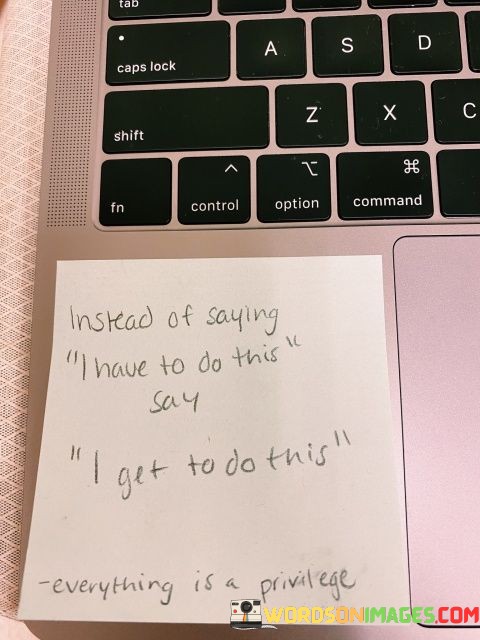 tab
caps lock
A
S
D
shift
Z
X
C
fn
^
control
⌥
option
⌘
command
Instead of saying
"I have to do this"
say
"I get to do this"
-everything is a privilege
WORDSONIMAGES.COM